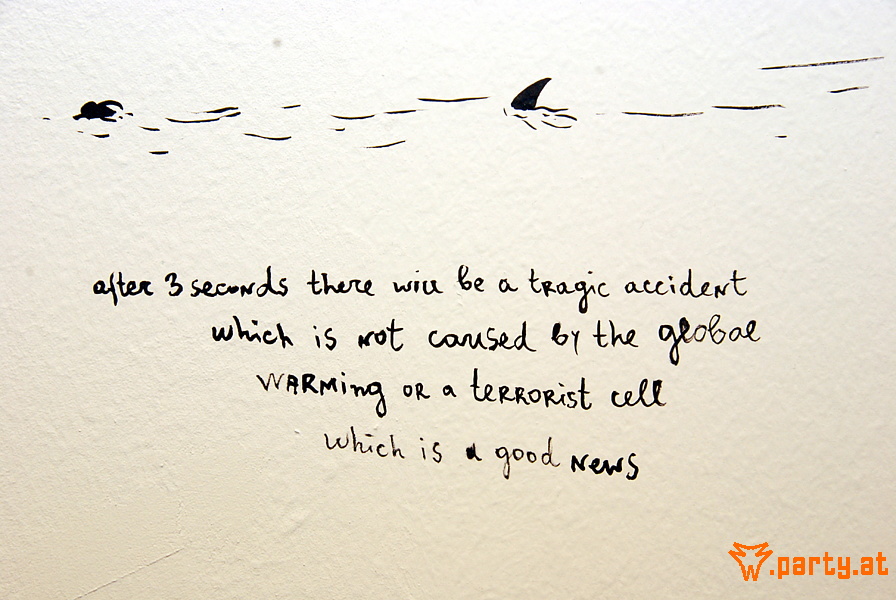 after 3 seconds there will be a tragic accident
which is not caused by the global
WARMing OR a teRRORist cell
which is a good News
W.party.at